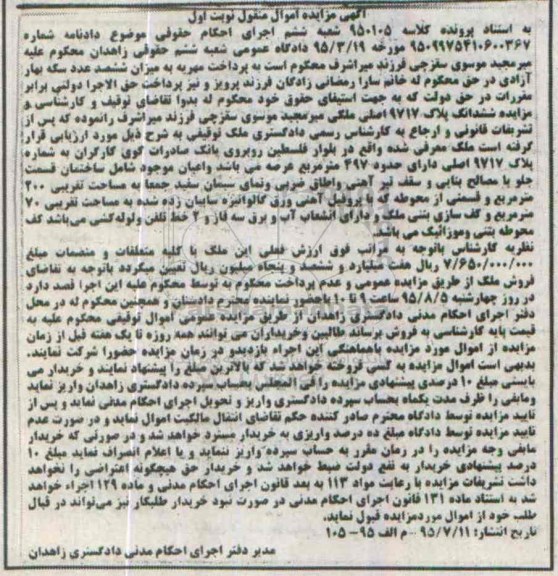 آگهی مزایده اموال منقول نوبت اول
به استناد پرونده کلاسه ۹۵۰۱۰۵ شعبه ششم اجرای احکام حقوقی موضوع دادنامه شماره
۹۵۰۹۹۷۵۴۱۰۶۰۰۳۶۷ مورخه ۹۵/۳/۱۹ دادگاه عمومی شعبه ششم حقوقی زاهدان محکوم علیه
میرمجید موسوی سفزچی فرزند میراشرف محکوم است به پرداخت مهریه به میزان ششصد عدد سکه بهار
آزادی در حق محکوم له خانم سارا رمضانی زادگان فرزند پرویز و نیز پرداخت حق الاجرا دولتی برابر
مقررات در حق دولت که به جهت استیفای حقوق خود محکوم له بدوا تقاضای توقیف و کارشناسی و
مزایده ششدانگ پلاک ۹۷۱۷ اصلی ملکی میرمجید موسوی سفزچی فرزند میراشرف رانموده که پس از
تشریفات قانونی و ارجاع به کارشناس رسمی دادگستری ملک توقیفی به شرح ذیل مورد ارزیابی قرار
گرفته است ملک معرفی شده واقع در بلوار فلسطین روبروی بانک صادرات کوی کارگران به شماره
پلاک ۹۷۱۷ اصلی دارای حدود ۴۹۷ مترمربع عرصه می باشد واعیان موجود شامل ساختمان قسمت
جلو با مصالح بنایی و سقف تیر آهنی واطاق ضربی ونمای سیمان سفید جمعا به مساحت تقریبی ۲۰۰
مترمربع و قسمتی از محوطه که با پروفیل آهنی ورق گالوانیزه سایبان زده شده به مساحت تقریبی ۷۰
مترمربع و کف سازی بتنی ملک و دارای انشعاب آب و برق سه فاز و ۲ خط تلفن ولوله کشی می‌باشد کف
محوطه بتنی وموزائیک می باشد.
نظریه کارشناس باتوجه به مراتب فوق ارزش فعلی این ملک با کلیه متعلقات و منضمات مبلغ
۷/۶۵۰/۰۰۰/۰۰۰ ریال هفت میلیارد و ششصد و پنجاه میلیون ریال تعیین میگردد باتوجه به تقاضای
فروش ملک از طریق مزایده عمومی و عدم پرداخت محکوم به توسط محکوم علیه این اجرا قصد دارد
در روز چهارشنبه ۹۵/۸/۵ ساعت ۹ تا ۱۰ باحضور نماینده محترم دادستان و همچنین محکوم له در محل
دفتر اجرای احکام مدنی دادگستری زاهدان از طریق مزایده حضوری اموال توقیفی محکوم علیه به
قیمت پایه کارشناسی به فروش برساند طالبین وخریداران می توانند همه روزه تا یک هفته قبل از زمان
مزایده از اموال مورد مزایده باهماهنگی این اجراء بازدیدو در زمان مزایده حضورا شرکت نمایند.
بدیهی است اموال مزایده به کسی فروخته خواهد شد که بالاترین مبلغ را پیشنهاد نمایند و خریدار می
بایستی مبلغ ۱۰ درصدی پیشنهادی مزایده را فی المجلس بحساب سپرده دادگستری زاهدان واریز نماید
ومابقی را ظرف مدت یکماه بحساب سپرده دادگستری واریز و تحویل اجرای احکام مدنی نماید و پس از
تایید مزایده توسط دادگاه محترم صادر کننده حکم تقاضای انتقال مالکیت اموال نماید و در صورت عدم
تایید مزایده توسط دادگاه مبلغ ده درصد واریزی به خریدار مسترد خواهد شد و در صورتی که خریدار
مابقی وجه مزایده را در زمان مقرر به حساب سپرده واریز ننماید و یا اعلام انصراف نماید مبلغ ۱۰
درصد پیشنهادی خریدار به نفع دولت ضبط خواهد شد و خریدار حق هیچگونه اعتراضی را نخواهد
داشت تشریفات مزایده با رعایت مواد ۱۱۳ به بعد قانون اجرای احکام مدنی و ماده ۱۲۹ اجراء خواهد
شد به استناد ماده ۱۳۱ قانون اجرای احکام مدنی در صورت نبود خریدار طلبکار نیز می‌تواند در قبال
طلب خود از اموال موردمزایده قبول نماید.
تاریخ انتشار: ۹۵/۷/۱۱ – م الف ۹۵-۱۰۵
مدیر دفتر اجرای احکام مدنی دادگستری زاهدان